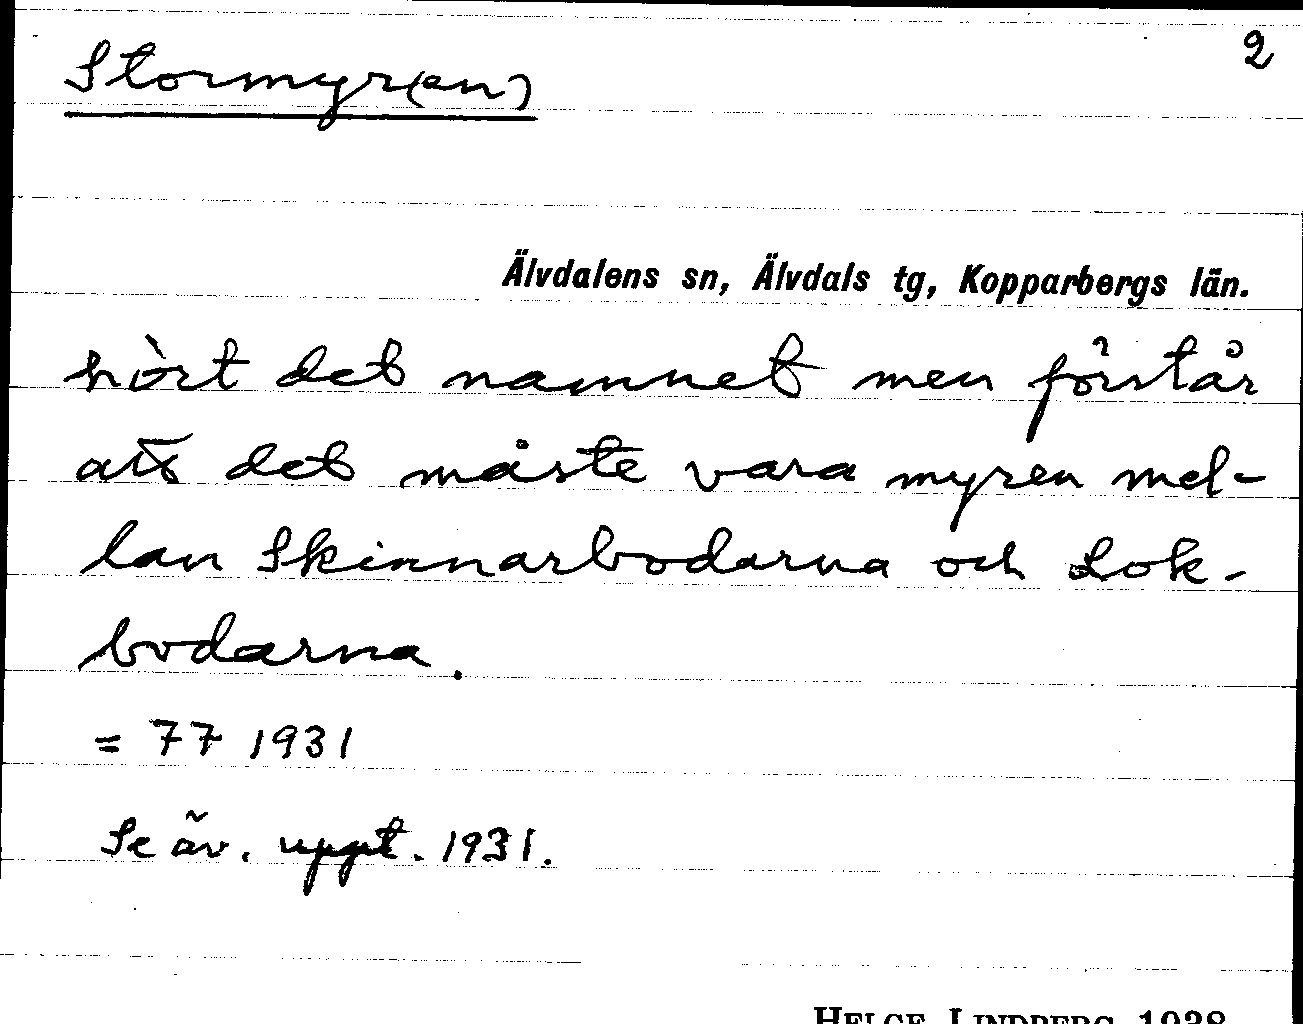 Stormyr(en)
2
Älvdalens sn, Älvdals tg, Kopparbergs län.
hört det namnet men förstår
att det måste vara myren mel-
lan Skinnarbodarna och Lok-
bodarna.
= 77 1931
Se äv. uppt. 1931.
HELGE LINDBERG 1938